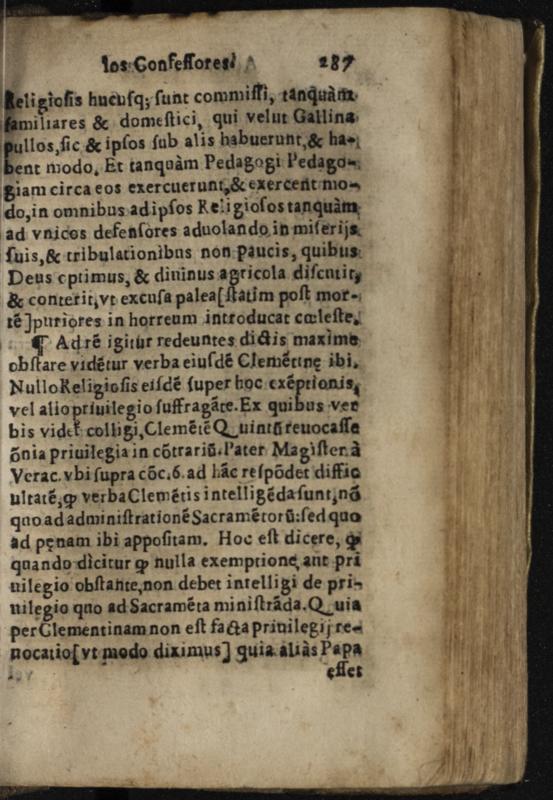 los Confessores. 287
Religiosis hucusq; sunt commissi, tanquàm
familiares & domestici, qui velut Gallina
pullos, sic & ipsos sub alis habuerunt, & ha-
bent modo. Et tanquàm Pedagogi Pedago-
giam circa eos exercuerunt, & exercent mo-
do, in omnibus ad ipsos Religiosos tanquàm
ad vnicos defensores aduolando in miserijs
suis, & tribulationibus non paucis, quibus
Deus optimus, & diuinus agricola discutit,
& conterit, vt excusa palea [statim post mor-
tē] puriores in horreum introducat cœleste.
¶ Ad rē igitur redeuntes dictis maximè
obstare vidētur verba eiusdē Clemētinę ibi.
Nullo Religiosis eisdē super hoc exēptionis,
vel alio priuilegio suffragāte. Ex quibus ver
bis videt̃ colligi, Clemētē Quintū reuocasse
õnia priuilegia in cōtrariū. Pater Magister à
Verac. vbi supra cōc. 6. ad hāc respōdet diffic
ultatē, ꝙ verba Clemētis intelligēda sunt, nō
quo ad administrationē Sacramētorū: sed quo
ad pęnam ibi appositam. Hoc est dicere, ꝙ
quando dicitur ꝙ nulla exemptione, aut pri
uilegio obstante, non debet intelligi de pri-
uilegio quo ad Sacramēta ministrāda. Quia
per Clementinam non est facta priuilegij re-
uocatio [vt modo diximus] quia aliàs Papa
esset